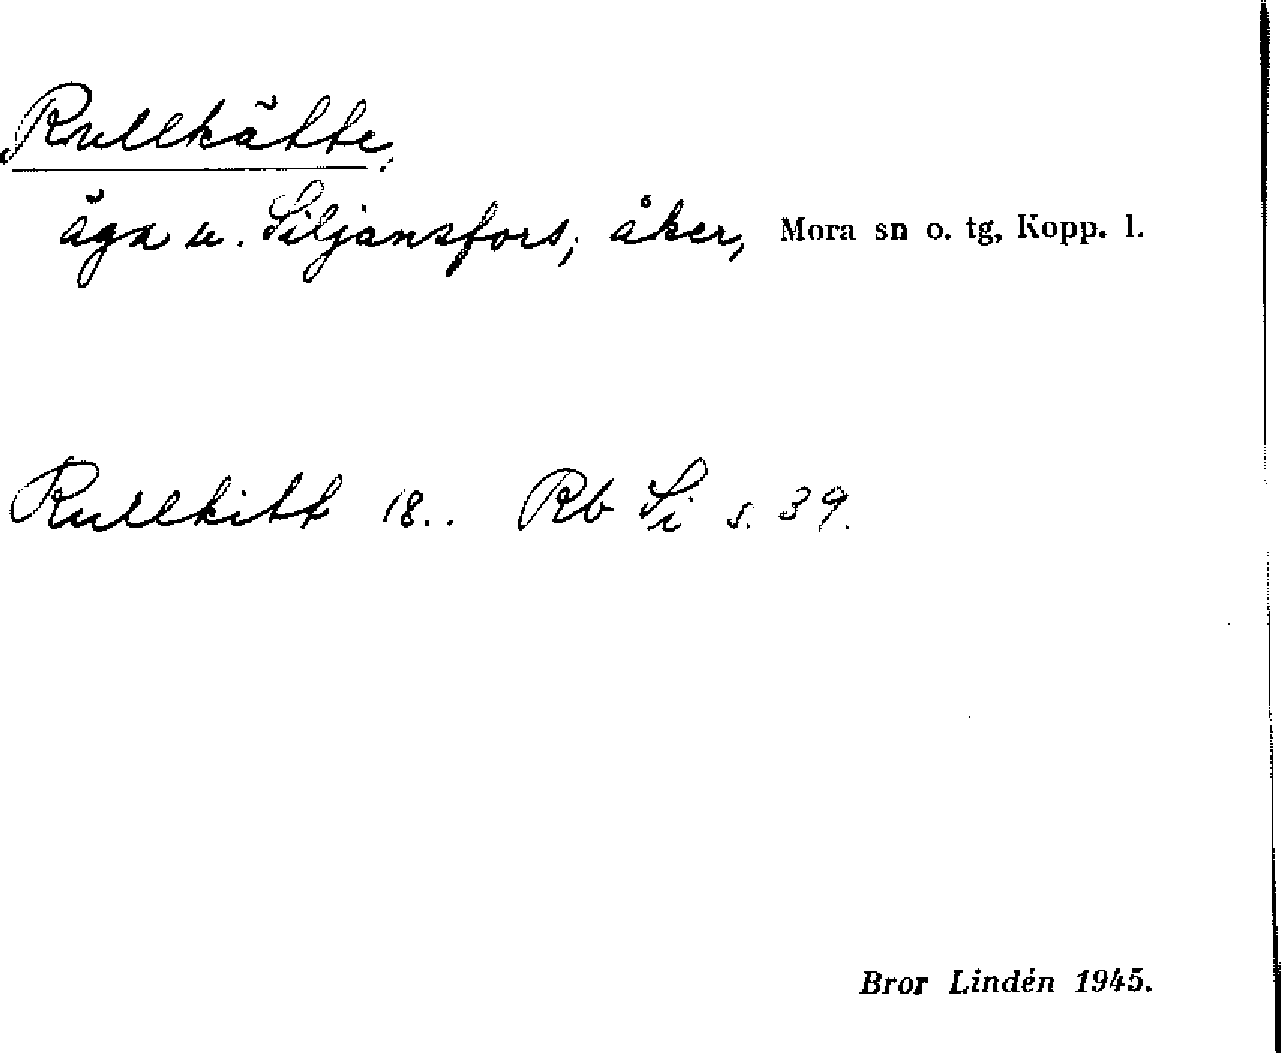 Rullkätte,
äga u. Siljansfors, åker, Mora sn o. tg, Kopp. l.
Rullkitt 18.. Rb Si s. 39.
Bror Lindén 1945.